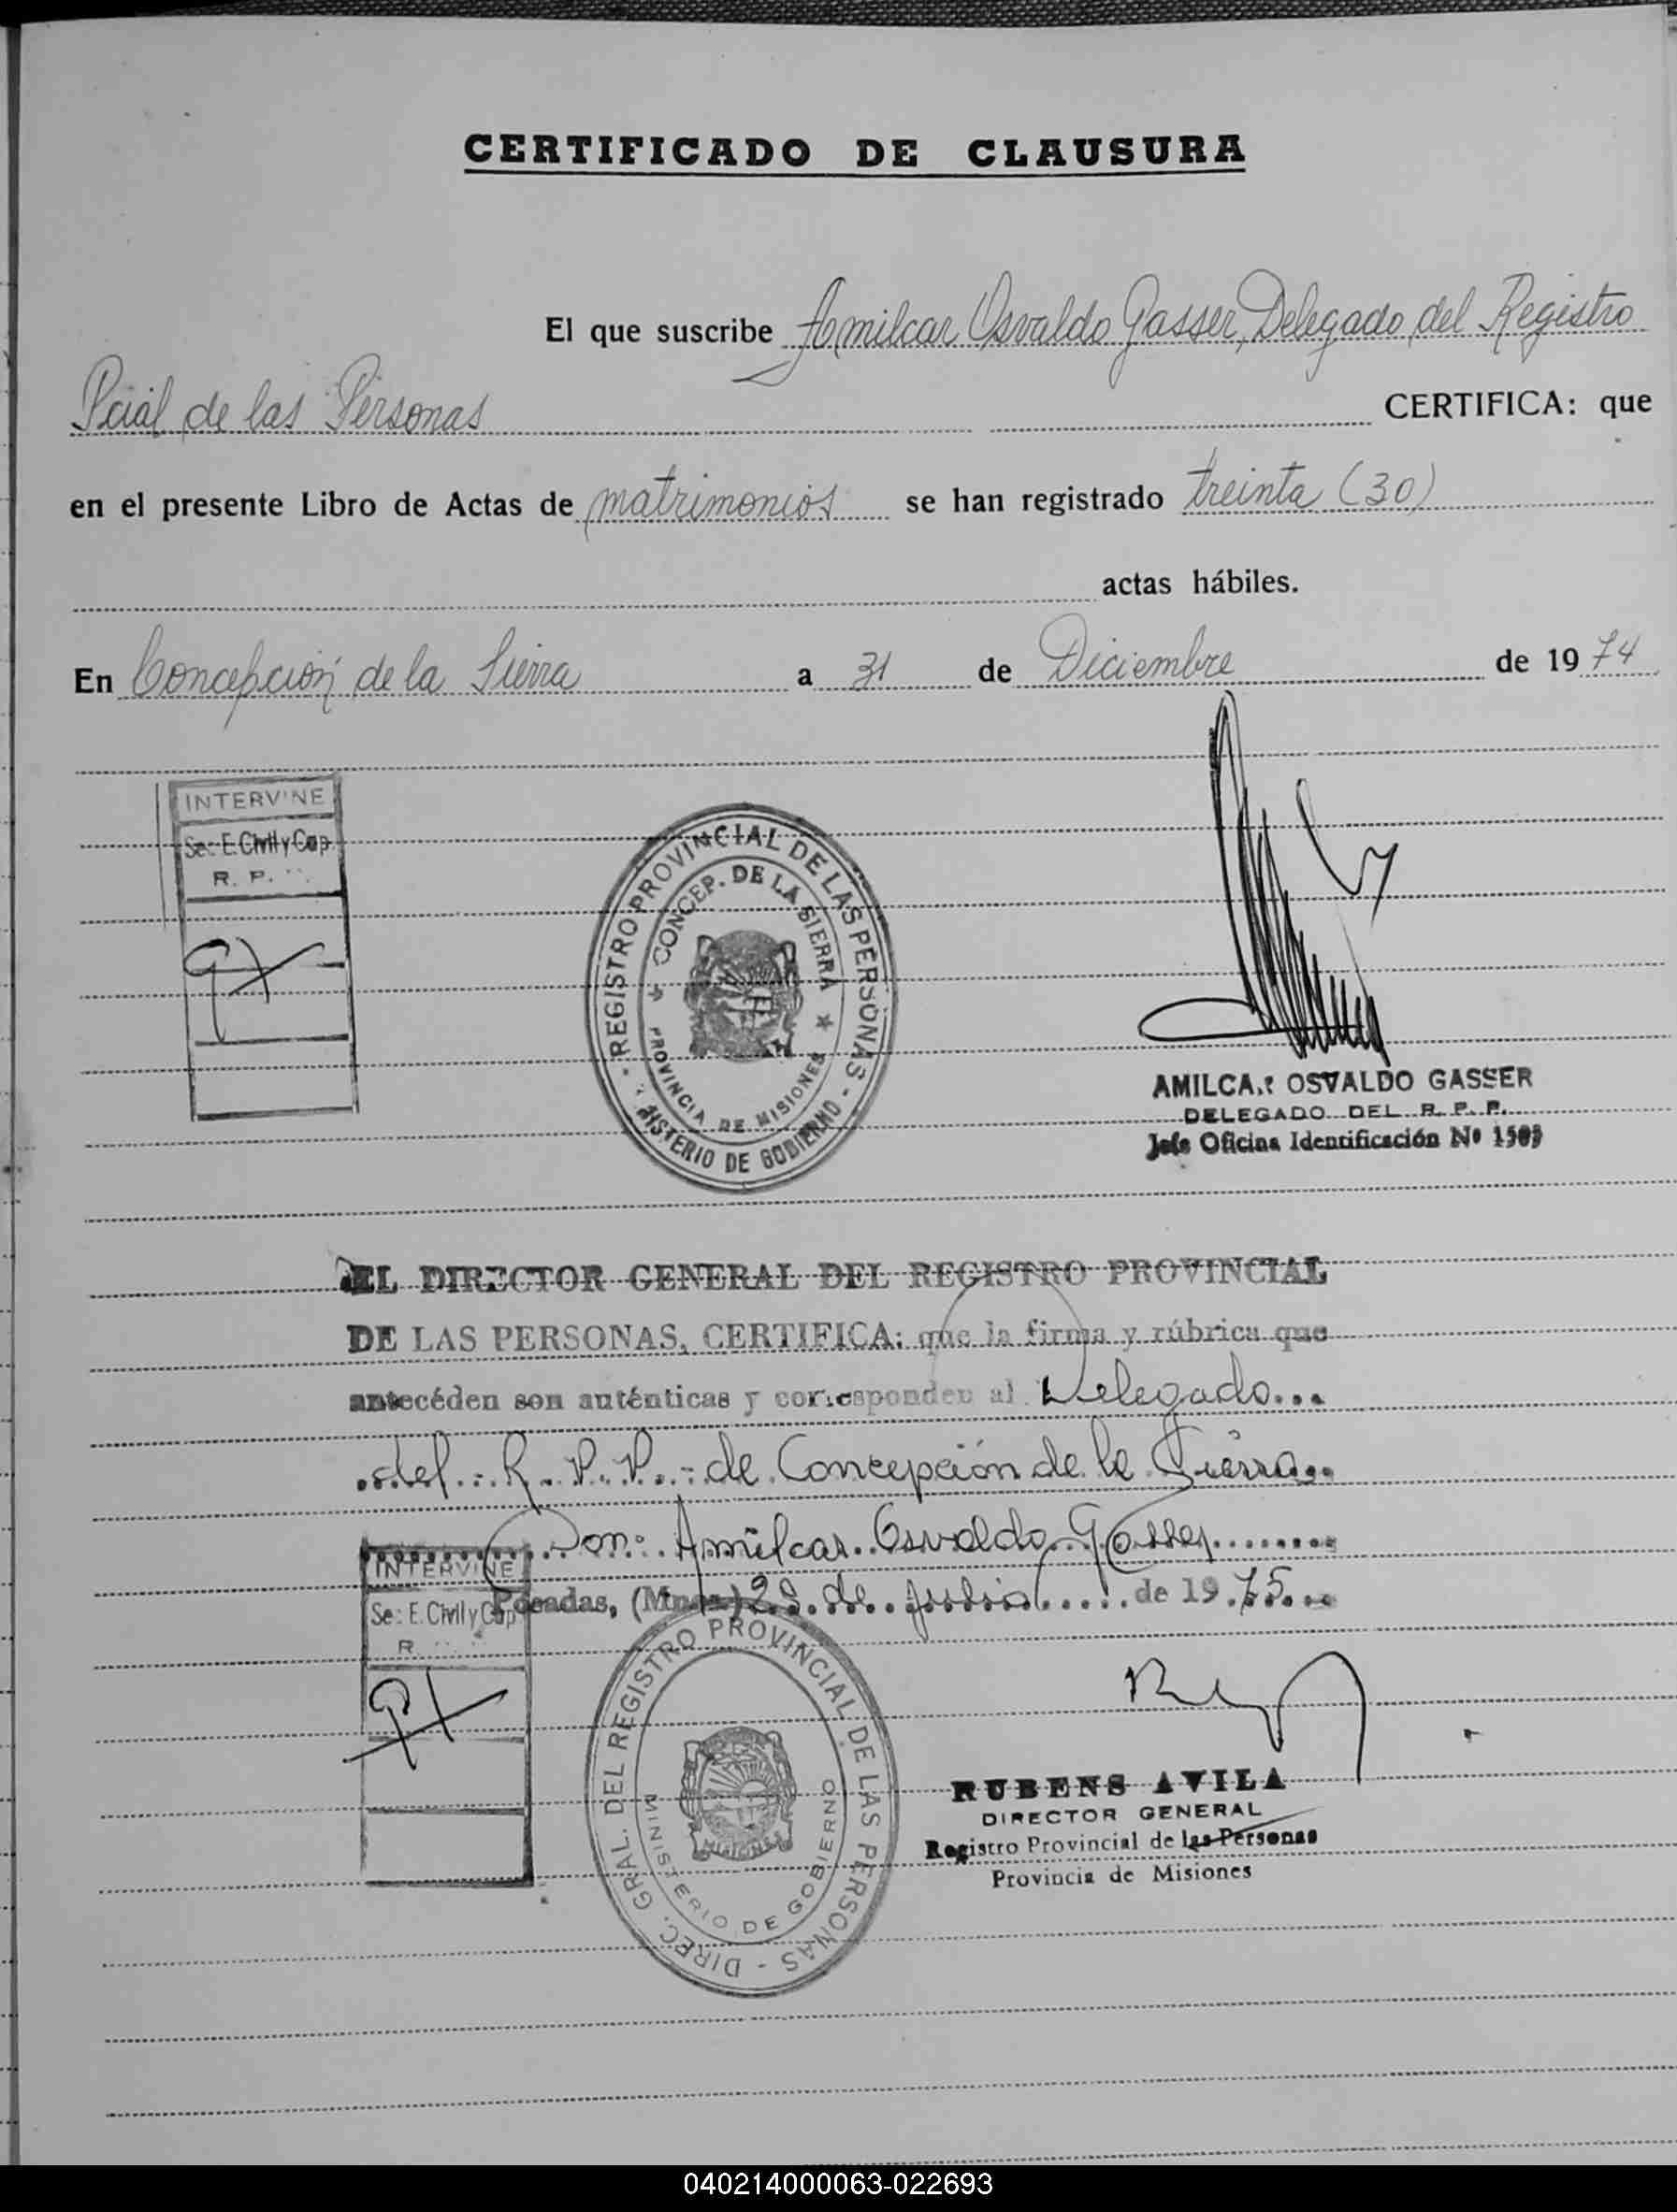 CERTIFICADO DE CLAUSURA
El que suscribe Amilcar Osvaldo Gasser, Delegado del Registro
Pcial de las Personas CERTIFICA: que
en el presente Libro de Actas de matrimonios se han registrado treinta (30)
actas hábiles.
En Concepción de la Sierra a 31 de Diciembre de 1974
INTERVINE
Sec E. Civil y Cap
R. P.
REGISTRO PROVINCIAL DE LAS PERSONAS
CONCEP. DE LA SIERRA
PROVINCIA DE MISIONES
MINISTERIO DE GOBIERNO
AMILCAR OSVALDO GASSER
DELEGADO DEL R. P. P.
Jefe Oficina Identificación Nº
EL DIRECTOR GENERAL DEL REGISTRO PROVINCIAL
DE LAS PERSONAS, CERTIFICA: que la firma y rúbrica que
antecéden son auténticas y corresponden al Delegado...
del R. P. P. de Concepción de la Sierra
Don: Amilcar Osvaldo Gasser
INTERVINE
Posadas, (Mnes.) de 1975
Sec E. Civil y Cap
R.
DIREC. GRAL. DEL REGISTRO PROVINCIAL DE LAS PERSONAS
MINISTERIO DE GOBIERNO
MISIONES
RUBENS AVILA
DIRECTOR GENERAL
Registro Provincial de las Personas
Provincia de Misiones
040214000063-022693